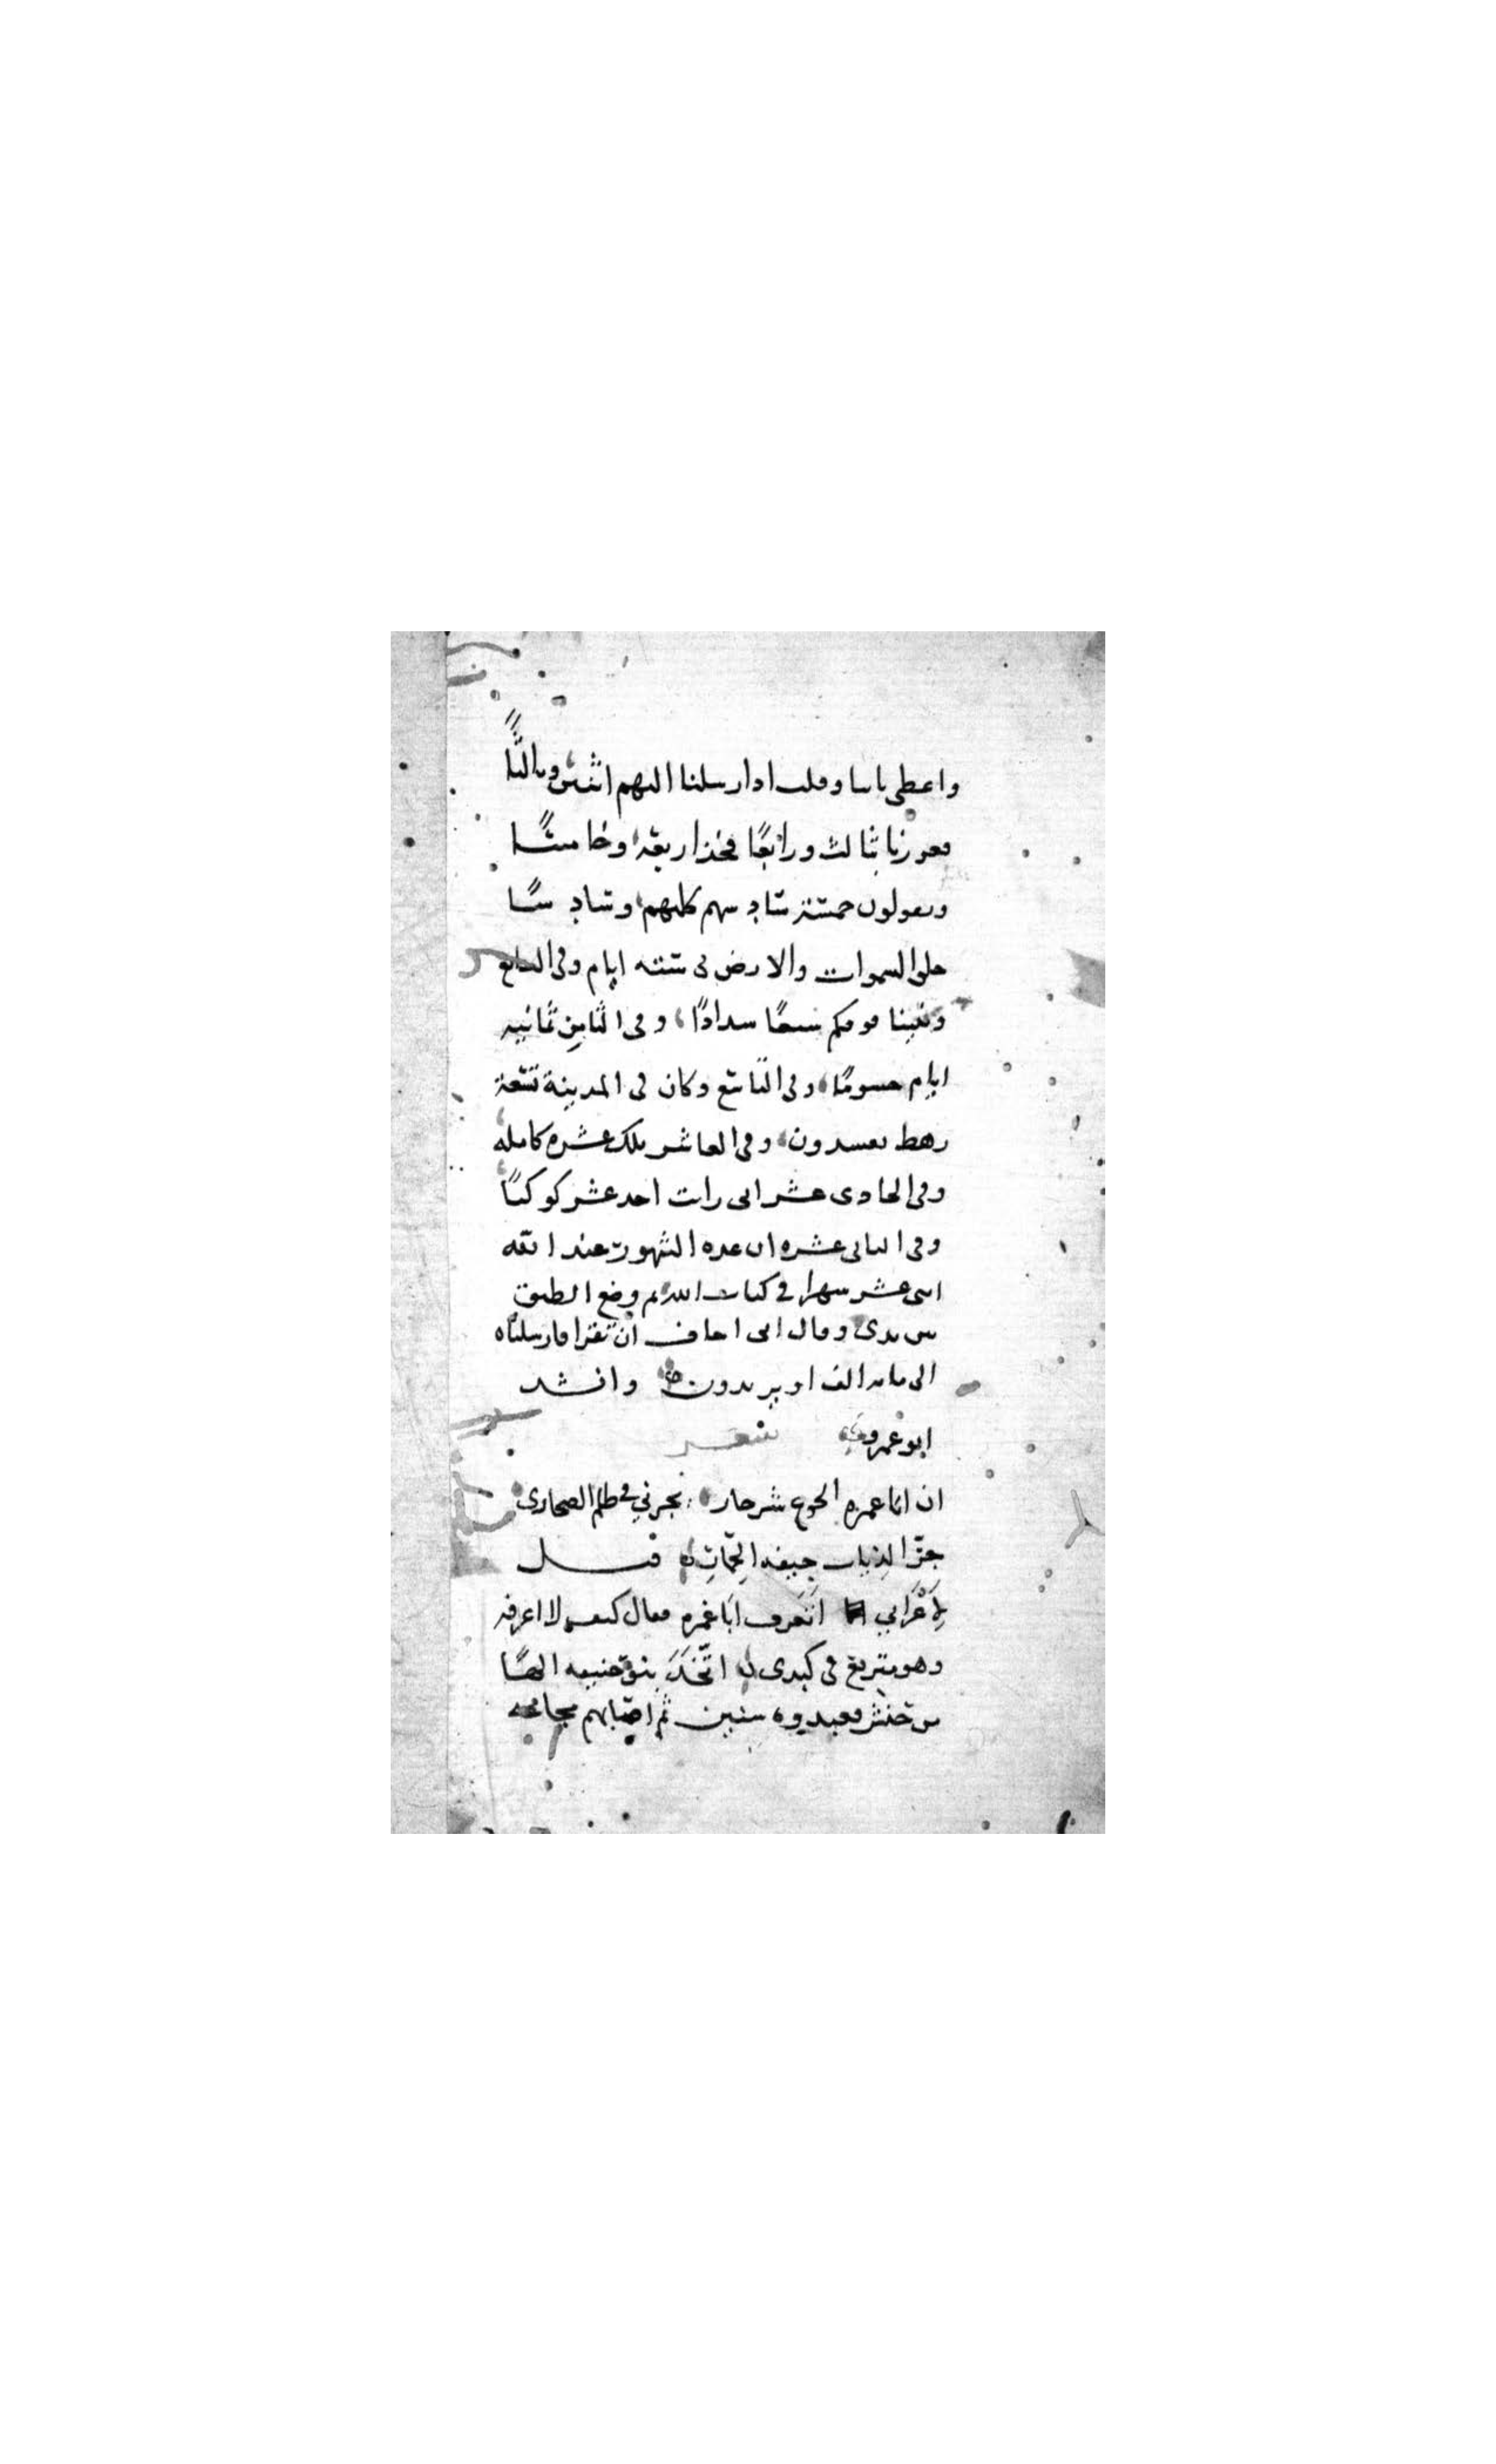 واعطى ثانيا وقلت اذ ارسلنا اليهم اثنين وثالثًا
فعززنا بثالث ورابعًا فخذ اربعة وخامسًا
ويقولون خمسة سادسهم كلبهم وسادسًا
خلق السموات والارض فى ستة ايام وفى السابع
وبنينا فوقكم سبعًا سدادًا وفى الثامن ثمانية
ايام حسومًا وفى التاسع وكان فى المدينة تسعة
رهط يفسدون وفى العاشر تلك عشرة كاملة
وفى الحادى عشر انى رايت احد عشر كوكبًا
وفى الثانى عشره ان عدة الشهور عند الله
اثنى عشر شهرا فى كتاب الله ثم وضع الطبق
بين يدى وقال انى اخاف ان تقرا فارسلناه
الى مائة الف او يزيدون وانشد
ابو عمرو شعر
ان ابا عمره الجوع شر جار يجرني في ظلم الصحارى
جرّ الذباب جيفة قيل
لِأعْرَابي أتَعرف ابَا عَمره فقال كيف لا اعرفه
وهو متربع فى كبدى اتّخذَت بنو حنيفه الهًا
من حيس فعبدوه سنين ثم اصابهم مجاعه